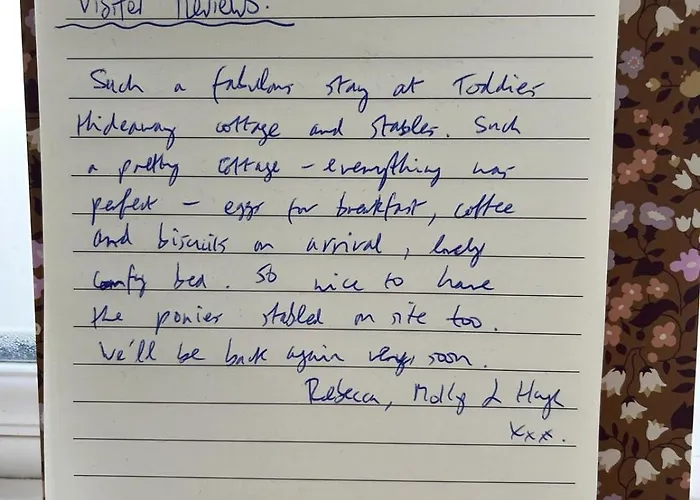 Visitor Reviews.
Such a fabulous stay at Toddies
Hideaway cottage and stables. Such
a pretty cottage - everything was
perfect - eggs for breakfast, coffee
and biscuits on arrival, lovely
comfy bed. So nice to have
the ponies stabled on site too.
We'll be back again very soon.
Rebecca, Molly & Hugh
xxx.